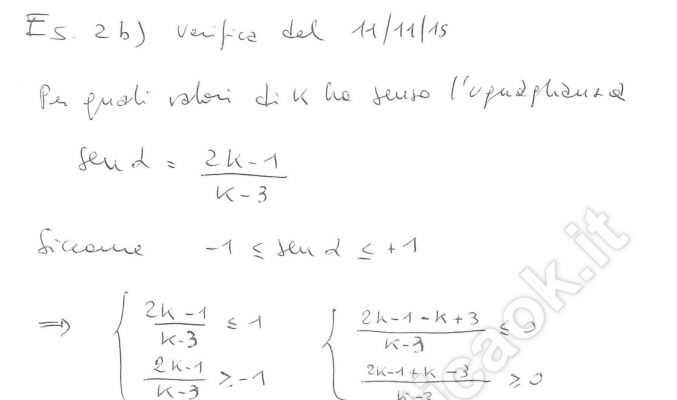 Es. 2b) Verifica del 11/11/15
Per quali valori di K ha senso l'uguaglianza
sen α = (2K-1)/(K-3)
Siccome -1 ≤ sen α ≤ +1
⇒ { (2K-1)/(K-3) ≤ 1 { (2K-1-K+3)/(K-3) ≤ 0
(2K-1)/(K-3) ≥ -1 (2K-1+K-3)/(K-3) ≥ 0
icaok.it